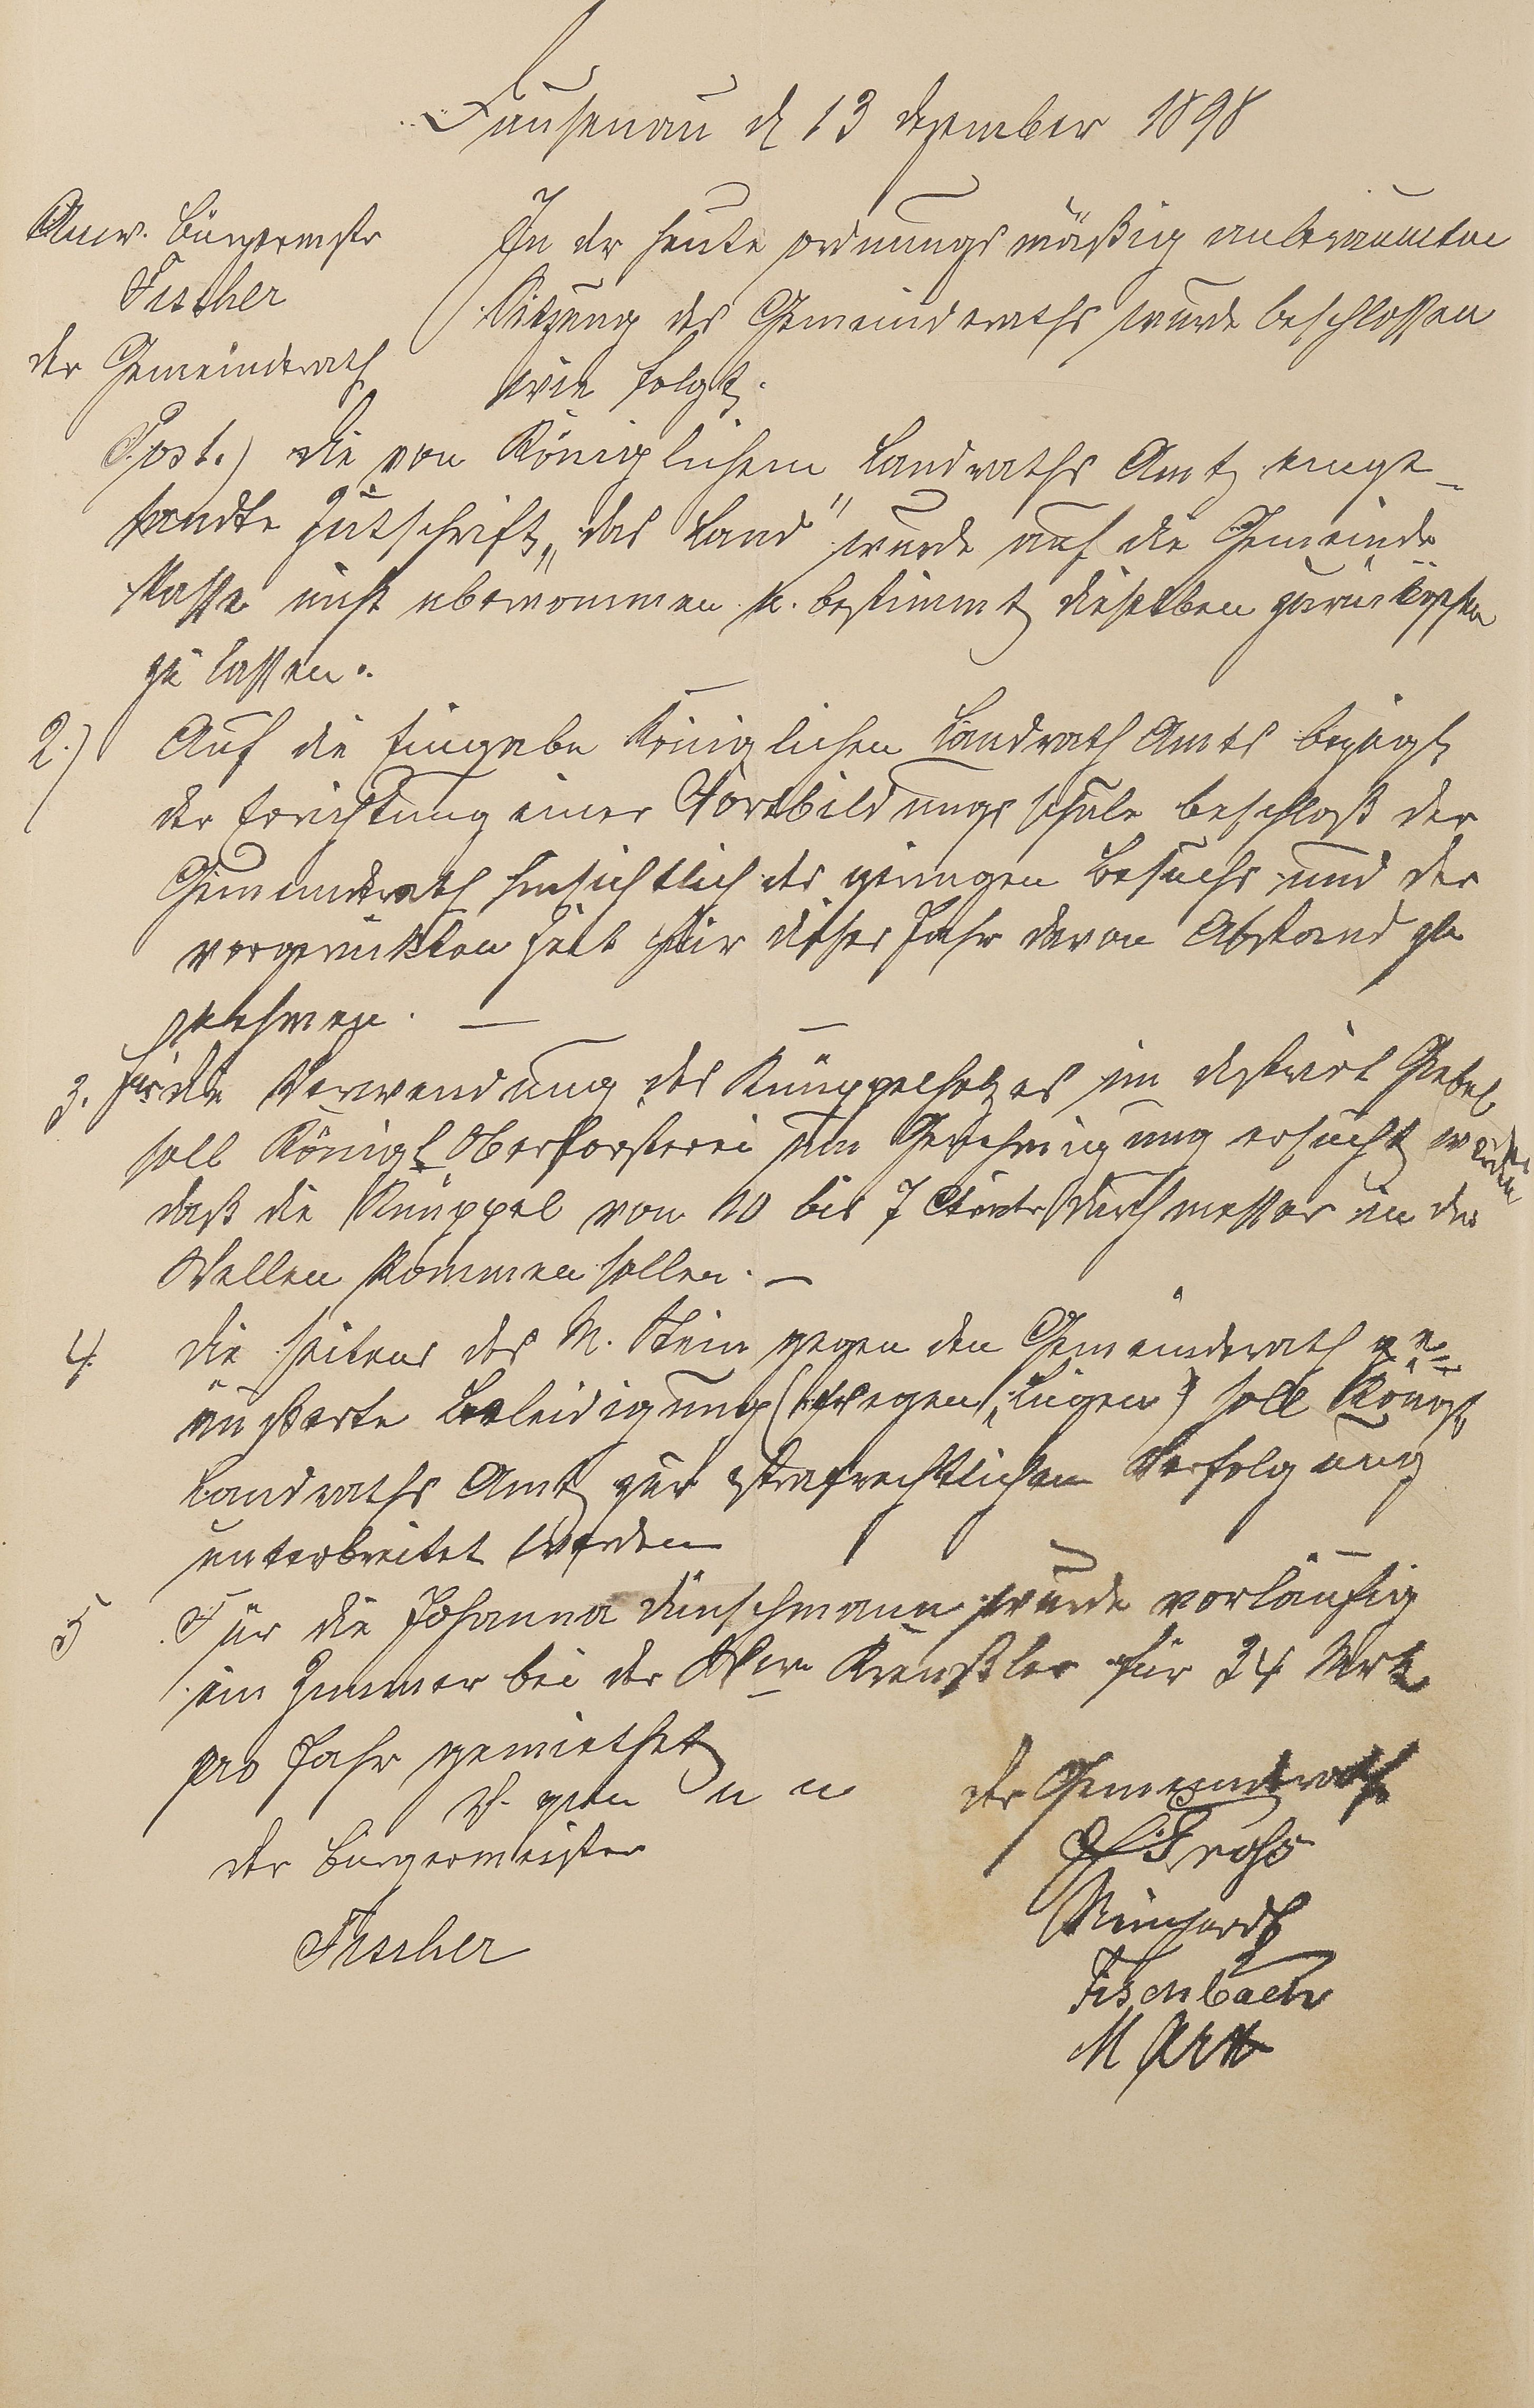 Dausenau d 13 Dezember 1898
Anw. Bürgermstr
Fischer
der Gemeinderath
In der heute ordnungsmäßig anberaumten
Sitzung des Gemeinderaths wurde beschlossen
wie folgt.
Post.) Die von Königlichem Landraths Amt einge-
sandte Zeitschrift „das Land" wurde auf die Gemeinde
Kasse nicht übernommen u. bestimmt dieselben zurück
zu lassen.
2.) Auf die Eingabe Königlichen Landrath Amts bezügl.
der Errichtung einer Fortbildungsschule beschloß der
Gemeinderath hinsichtlich des geringen Besuchs und der
vorgerückten Zeit für dieses Jahr davon Abstand zu
nehmen. —
3. Für die Verwendung des Knüppelholzes im Distrikt
soll Königl Oberförsterei um Genehmigung ersucht werden
daß die Knüppel von 10 bis 7 Durchmesser in die
Wellen kommen sollen. —
4. Die seitens des M. Stein gegen den Gemeinderath ge-
äußerte Beleidigung (wegen Lügen) soll Königl.
Landraths Amt zur strafrechtlichen Verfolgung
unterbreitet werden
5 Für die Johanna Dünschmann wurde vorläufig
ein Zimmer bei der Wwe für 24 Mrk
pro Jahr gemiethet
V. g. u. u
der Bürgermeister
Fischer
der Gemeinderath
Reinhardt
Fischbach
M